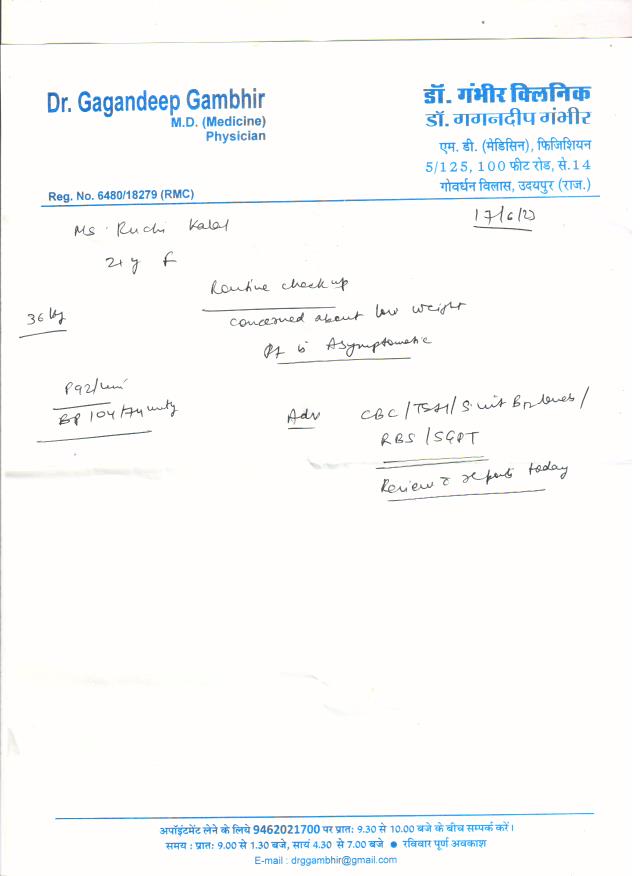 Dr. Gagandeep Gambhir
M.D. (Medicine)
Physician
Reg. No. 6480/18279 (RMC)
डॉ. गंभीर क्लिनिक
डॉ. गगनदीप गंभीर
एम. डी. (मेडिसिन), फिजिशियन
5/125, 100 फीट रोड, से.14
गोवर्धन विलास, उदयपुर (राज.)
Ms. Ruchi
17/6/23
y F
Routine check up
36 kg
concerned about low weight
Pt is Asymptomatic
P 92/min
BP 104/
Adv CBC/TSH/S. Vit B12 levels/
RBS/SGPT
Review c reports today
अपॉइंटमेंट लेने के लिये 9462021700 पर प्रातः 9.30 से 10.00 बजे के बीच सम्पर्क करें।
समय : प्रातः 9.00 से 1.30 बजे, सायं 4.30 से 7.00 बजे ● रविवार पूर्ण अवकाश
E-mail : drggambhir@gmail.com